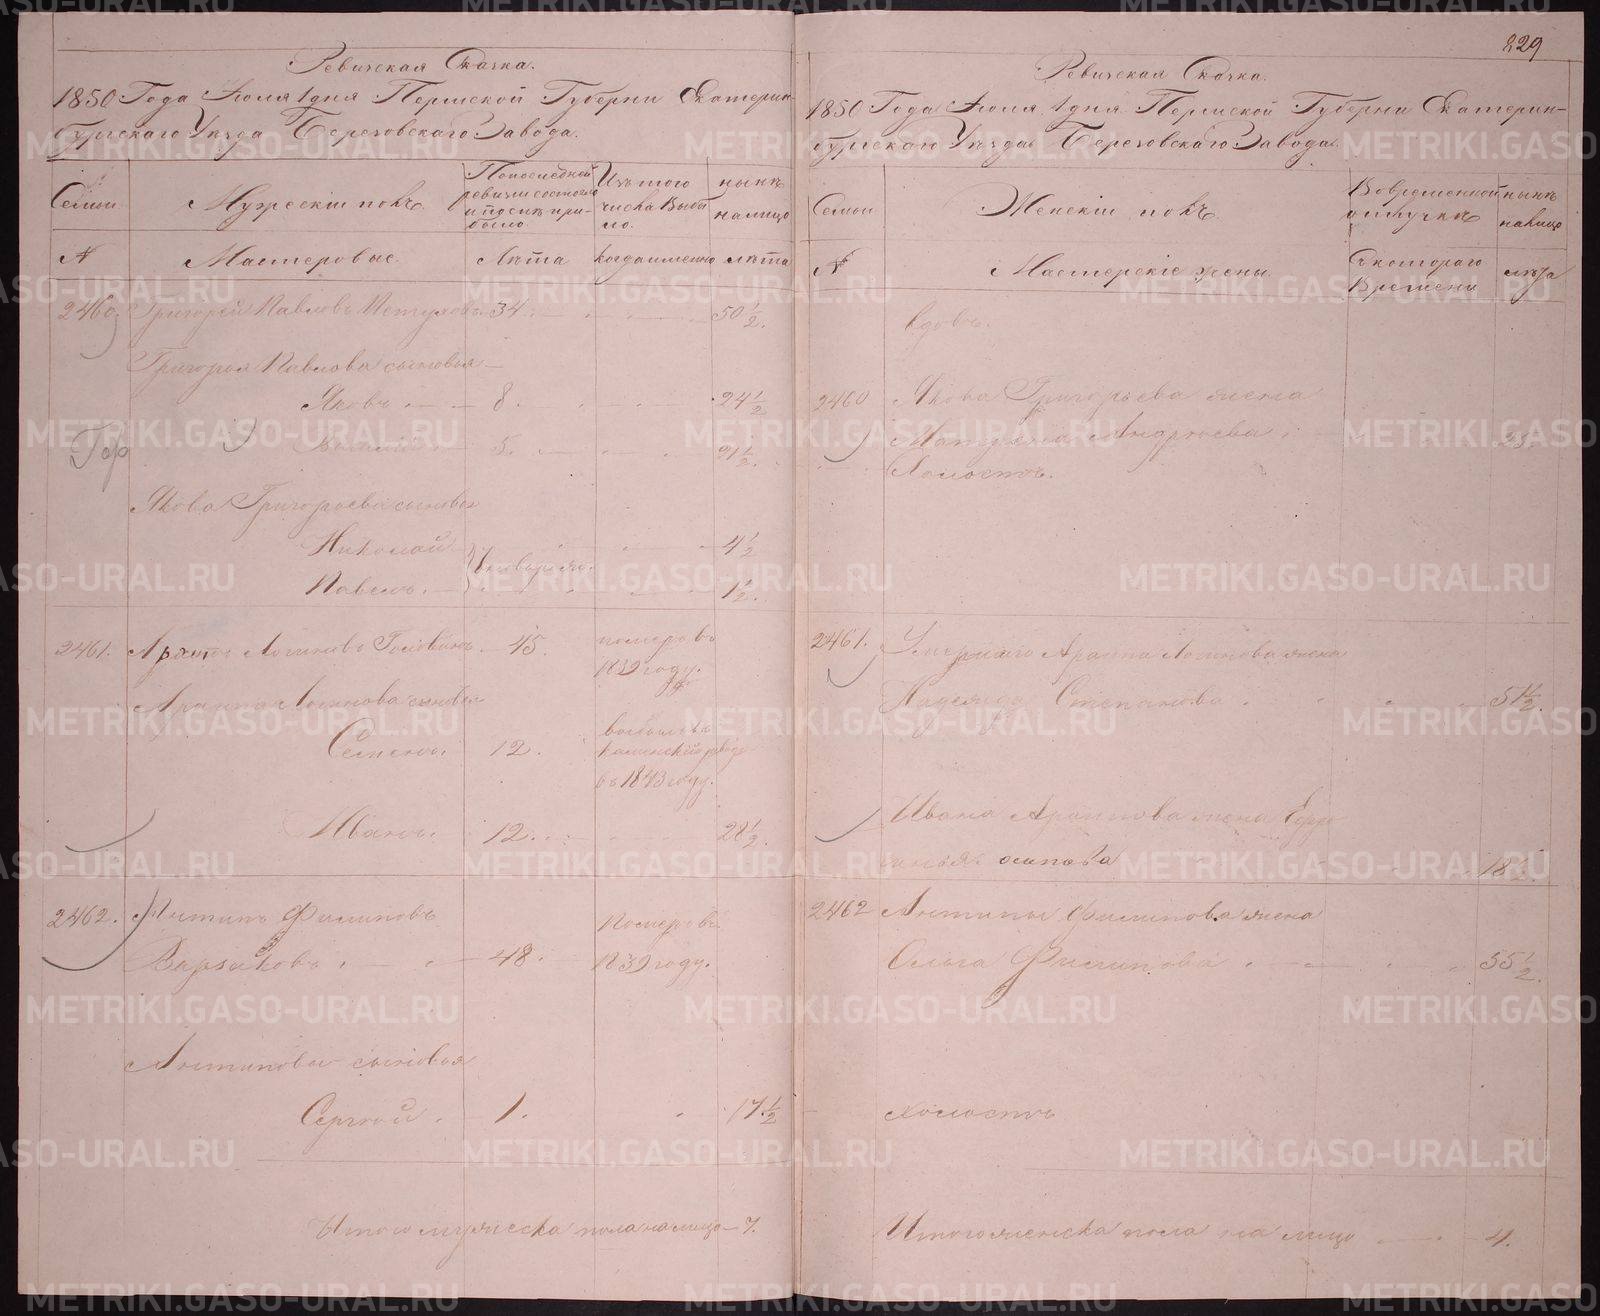 Ревизская Сказка.
1850 Года Июля 1 дня Пермской Губерни Екатерин-
бургскаго Уѣзда Березовскаго Завода.
Семьи
Мужескій полъ
Попоследней ревизи состояло и после при-было
Изъ того числа Выбы ло.
нынѣ на лицо
№
Мастеровые.
Лѣта
когда именно
лѣта
2460.
Григорей Павловъ Петуховъ 34. 50 1/2.
Григорья Павлова сыновья
Яковъ 8. 24 1/2
Гор
Василей 5. 21 1/2.
Якова Григорьева сыновья
Николай 4 1/2
Павелъ. 1 1/2.
2461. Архипъ Логиновъ Головинъ 45. померъ въ
1839 году.
Архипа Логинова сыновья
Семенъ. 12. выбылъ въ
каменской заводъ
въ 1843 году.
Иванъ. 12. 28 1/2.
2462. Антипъ Филиповъ Померъ въ
48. 1839 году.
Антиповы сыновья
Сергей. 1. 17 1/2
Итого мужеска пола на лицо 7.
829
Ревизская Сказка.
1850 Года Июля 1 дня Пермской Губерни Екатерин-
бургскаго Уѣзда Березовскаго Завода.
Семьи
Женскій полъ
Во временной отлучкѣ
нынѣ налицо
№
Мастерскіе жены.
Съ котораго Времени
лѣта
вдовъ.
2460 Якова Григорьева жена
Матрена Андреева 25.
Холостъ.
2461. Умершаго Архипа Логинова жена
Надежда Степанова 51 1/2.
Ивана Архипова жена
осипова 18 1/2.
2462 Антипы Филипова жена
Ольга Филипова 55 1/2.
холостъ
Итого женска пола на лицо 4.
METRIKI.GASO-URAL.RU